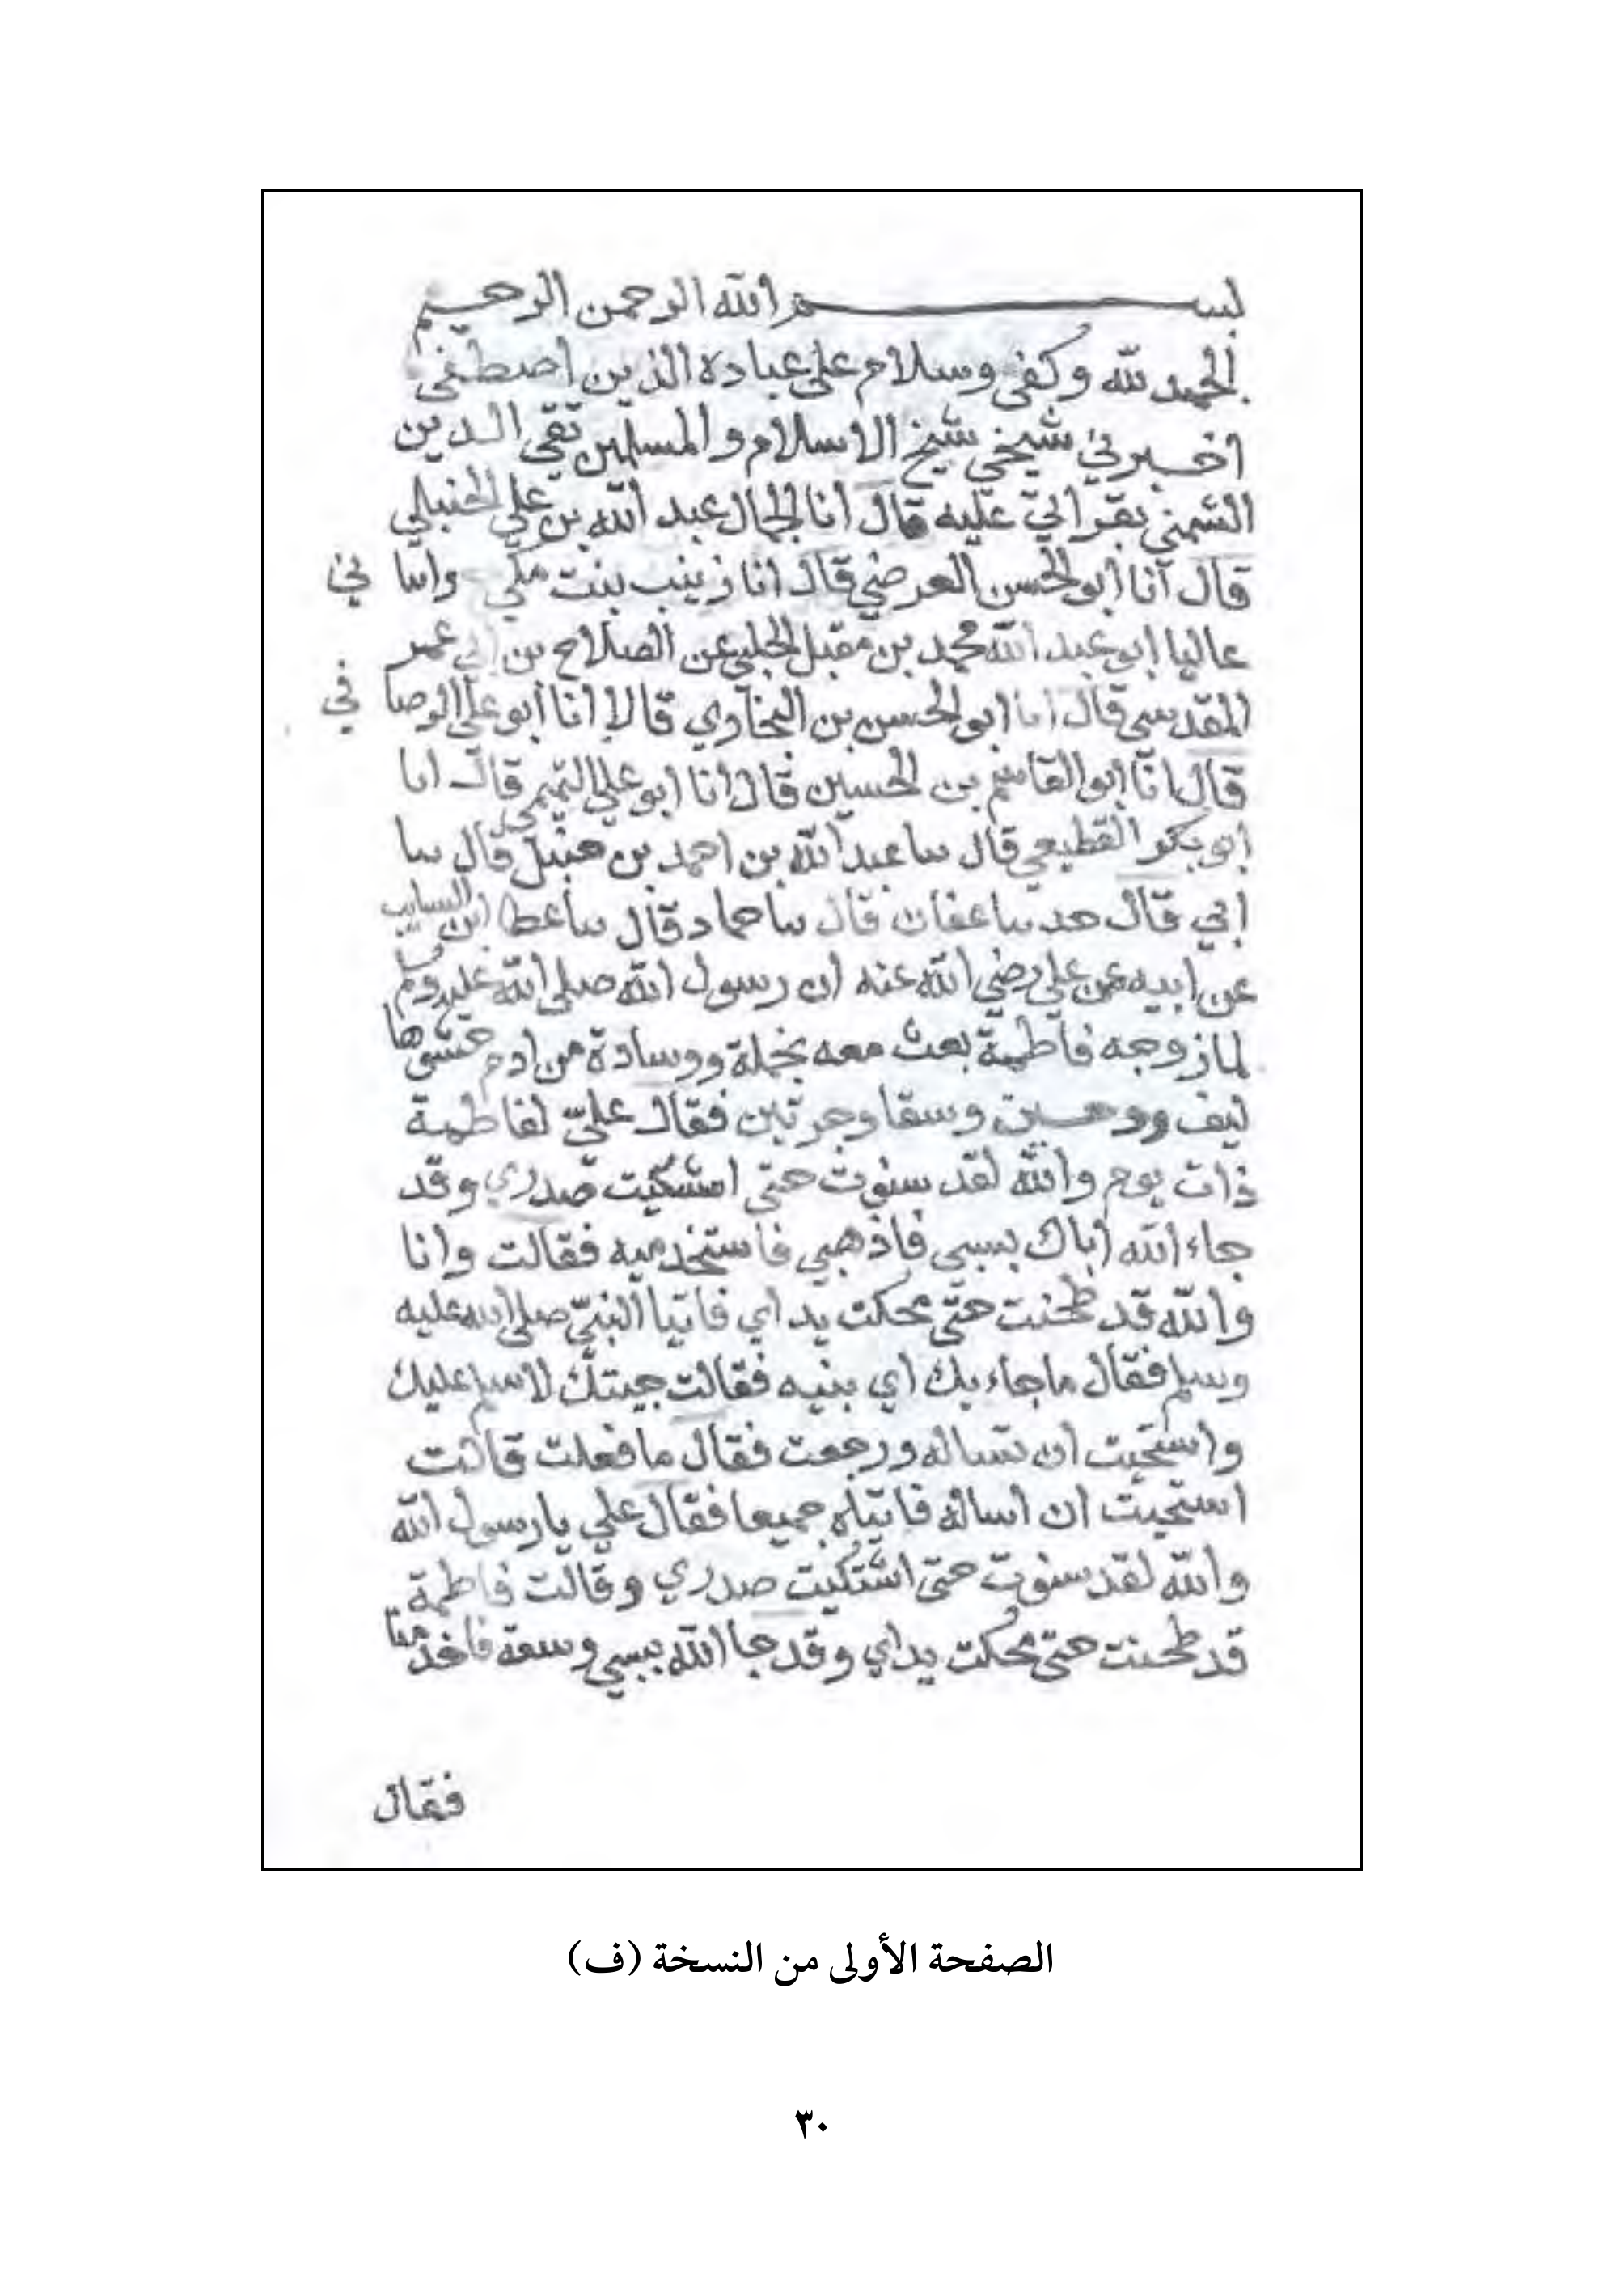 بسم الله الرحمن الرحيم
الحمد لله وكفى وسلام على عباده الذين اصطفى
اخبرني شيخي شيخ الاسلام والمسلمين تقي الدين
الشمني بقراتي عليه قال أنا الجمال عبد الله بن علي الحنبلي
قال أنا أبو الحسن العرضي قال انا زينب بنت مكي وانبا ني
عاليا ابو عبد الله محمد بن مقبل الحلبي عن الصلاح بن ابي عمر
المقدسي قال انا ابو الحسن بن البخاري قالا انا أبو علي الرصا في
قال انا ابو القاسم بن الحسين قال انا ابو علي التميمي قال انا
ابو بكر القطيعي قال سا عبد الله بن احمد بن حنبل قال سا
ابي قال حد سا عفان قال سا حماد قال سا عطا ابن السايب
عن ابيه عن علي رضي الله عنه ان رسول الله صلى الله عليه وسلم
لما زوجه فاطمة بعث معه بخملة ووسادة من ادم حشوها
ليف ورحيين وسقا وجرتين فقال عليّ لفاطمة
ذات يوم والله لقد سنوت حتى اشتكيت صدري وقد
جاء الله أباك بسبي فاذهبي فاستخدميه فقالت وانا
والله قد طحنت حتى مجلت يداي فاتيا النبي صلى الله عليه
وسلم فقال ما جاء بك اي بنيه فقالت جيتك لاسلم عليك
واستحيت ان تساله ورجعت فقال ما فعلت قالت
استحييت ان اساله فاتياه جميعا فقال علي يا رسول الله
والله لقد سنوت حتى اشتكيت صدري وقالت فاطمة
قد طحنت حتى مجلت يداي وقد جا الله بسبي وسعة فاخدمنا
فقال
الصفحة الأولى من النسخة (ف)
٣٠